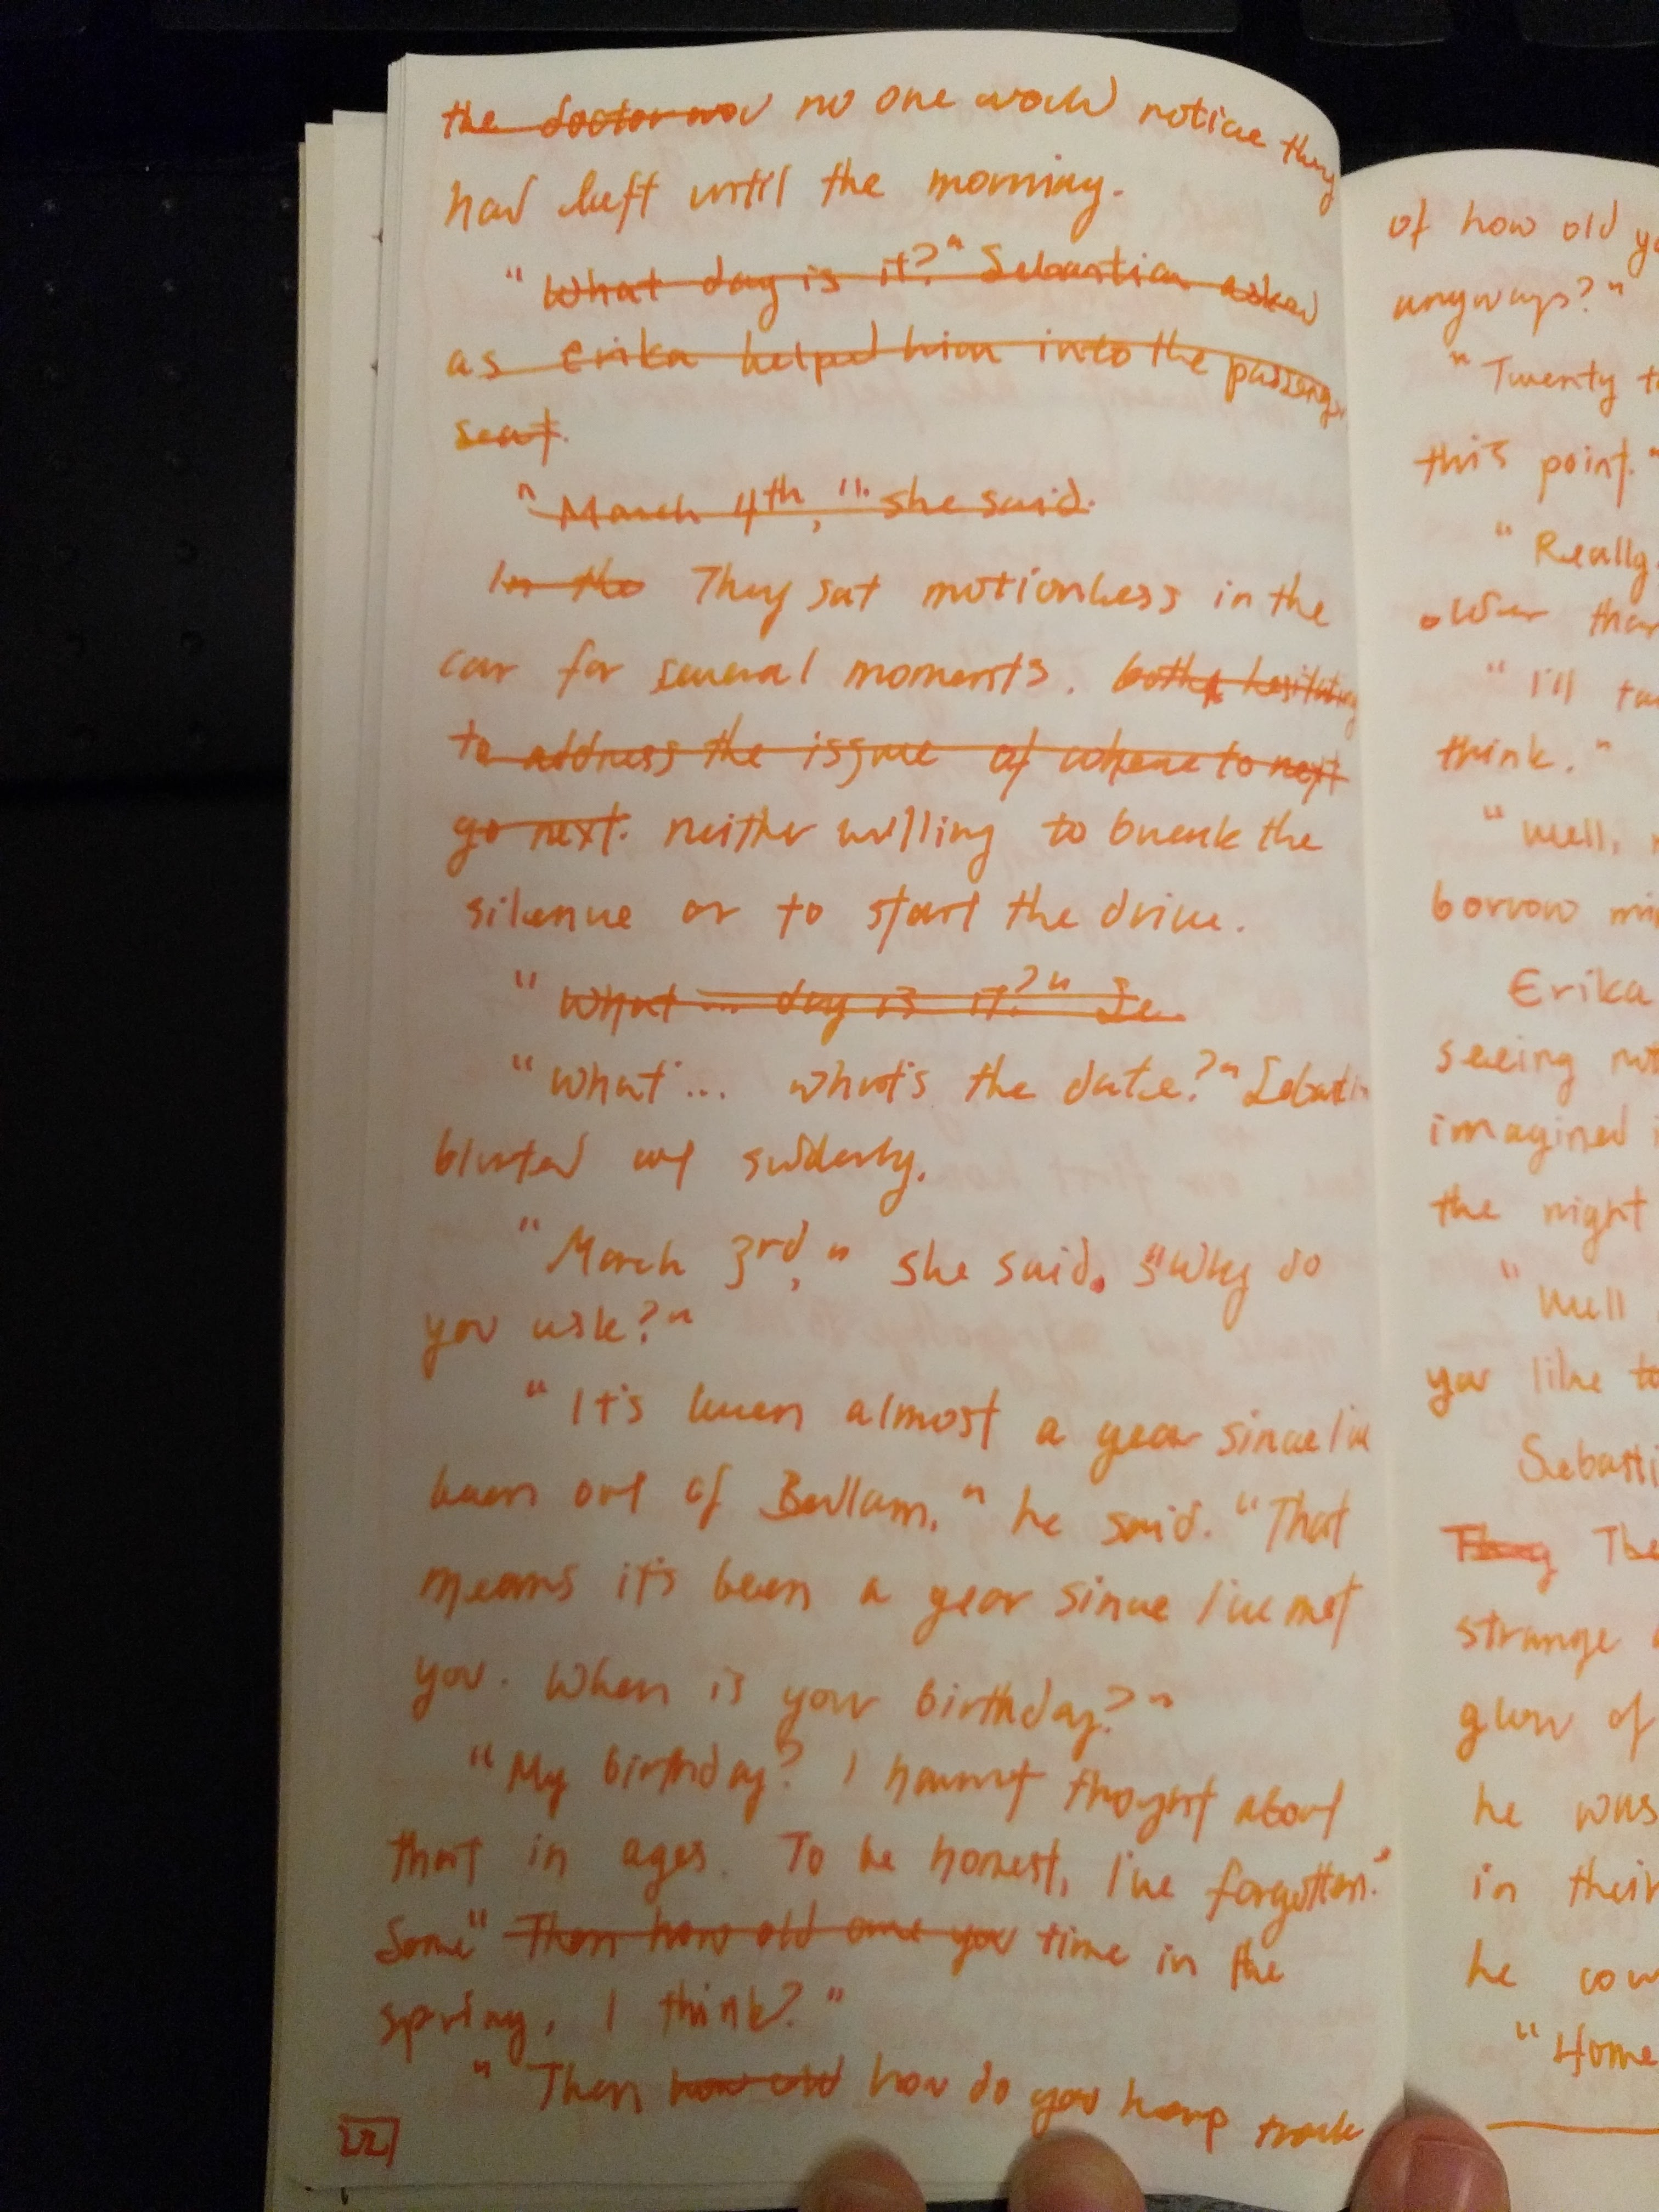 the doctor wou no one would notice they
had left until the morning.
"What day is it?" Sebastian asked
as Erika helped him into the passenger
seat.
"March 4th," she said.
In the They sat motionless in the
car for several moments, both hesitating
to address the issue of where to next
go next. neither willing to break the
silence or to start the drive.
"What... day is it?" Se
"What... what's the date?" Sebastian
blurted out suddenly.
"March 3rd," she said. "Why do
you ask?"
"It's been almost a year since I've
been out of Bedlam," he said. "That
means it's been a year since I've met
you. When is your birthday?"
"My birthday? I haven't thought about
that in ages. To be honest, I've forgotten."
Some" Then how old are you time in the
spring, I think?"
"Then how old how do you keep track
22
of how old yo
anyways?"
"Twenty t
this point."
"Really.
than
"I'll ta
think."
"Well,
borrow mi
Erika
seeing not
imagined i
the night
"Well
you like to
Sebasti
They The
strange
glow of
he was
in their
he cou
"Home